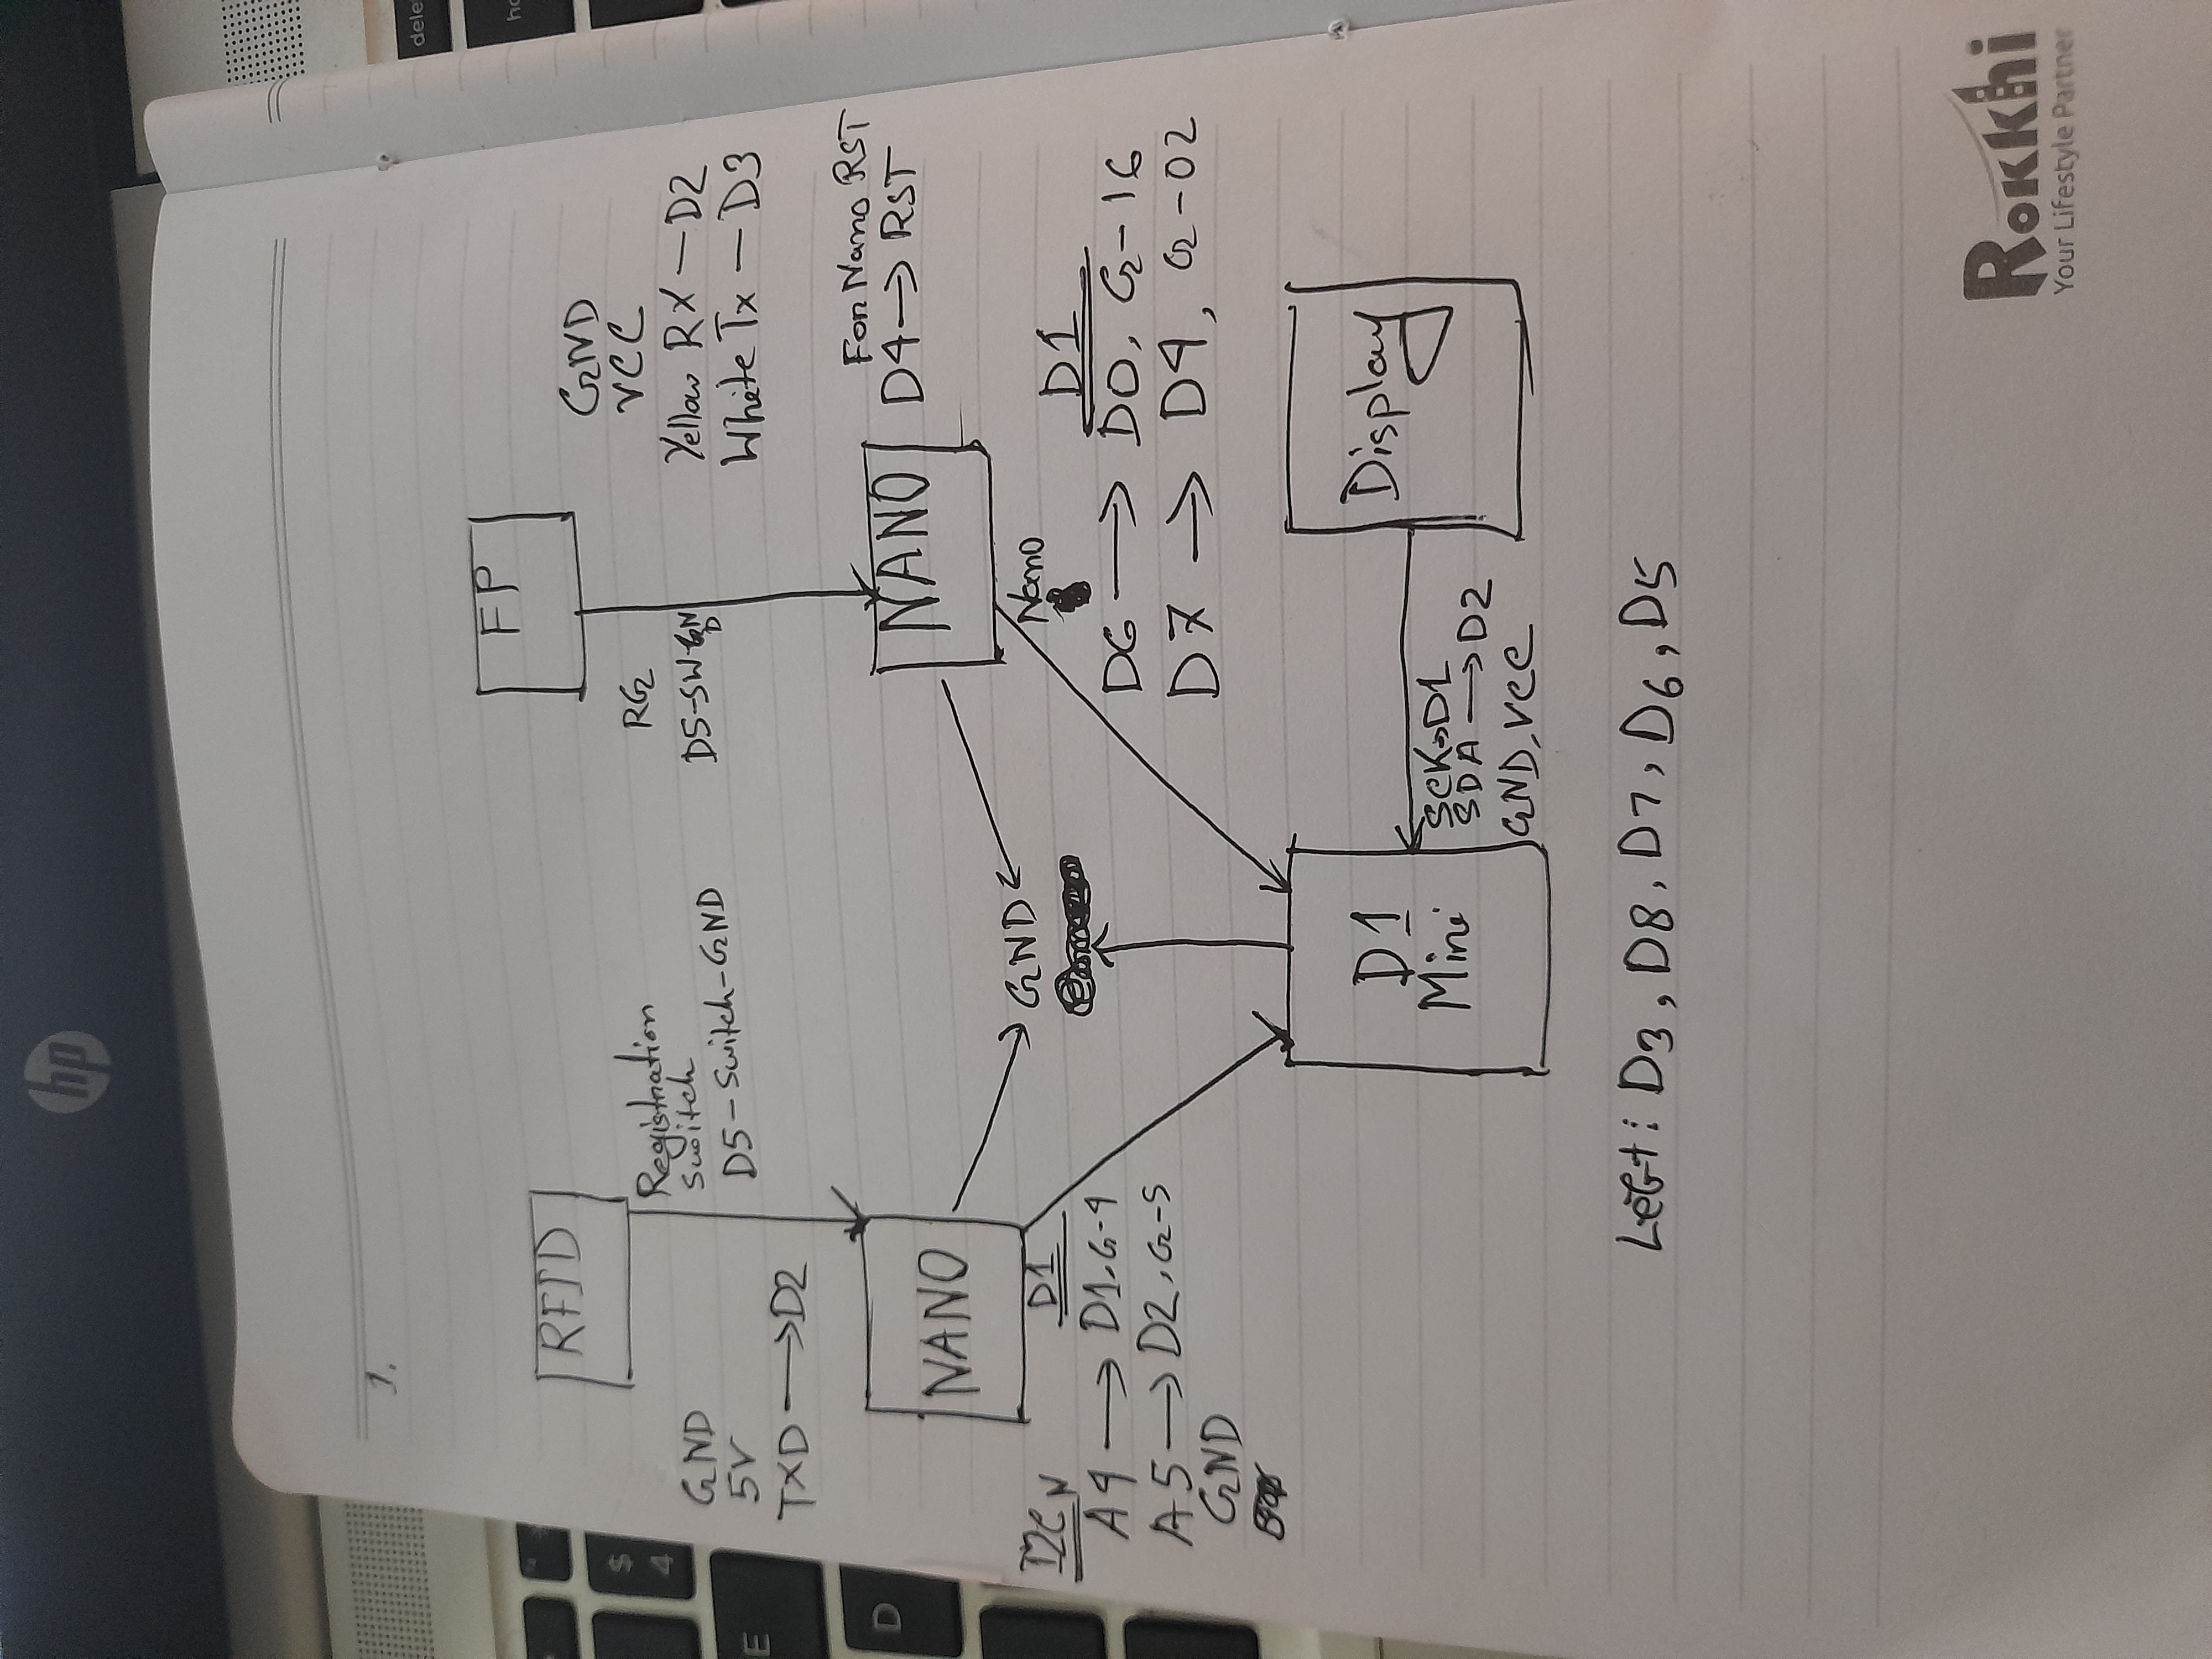 hp
dele
ho
$
4
E
D
1.
RFID
Registration
Switch
D5-Switch-GND
GND
5V
TXD → D2
NANO
FP
RG
D5-SW-GND
GND
VCC
Yellow RX - D2
White Tx - D3
NANO
For Nano RST
D4 → RST
GND
I2C N D1
A4 → D1, G-4
A5 → D2, G-5
GND
Nano D1
D6 → D0, G-16
D7 → D4, G-02
D1
Mini
SCK → D1
SDA → D2
GND, VCC
Display
Left: D3, D8, D7, D6, D5
Rokkhi
Your Lifestyle Partner